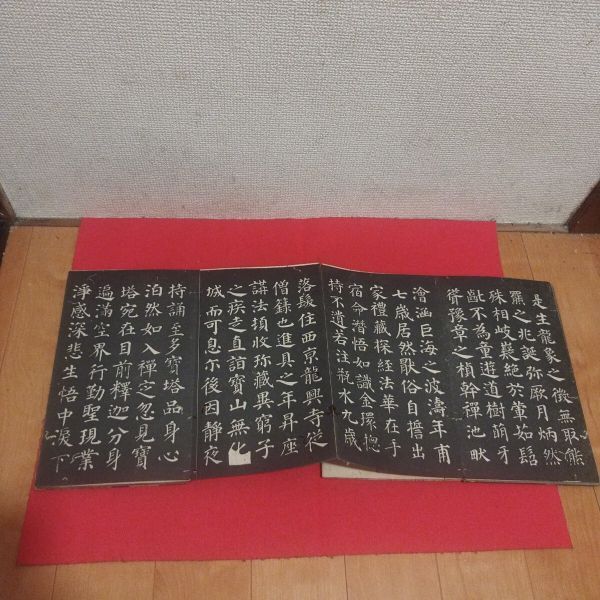 是生龍象之徵無取熊
羆之兆誕弥厥月炳然
殊相岐嶷絕於葷茹髫
齔不為童遊道樹萌牙
聳豫章之楨幹禪池畎
澮涵巨海之波濤年甫
七歲居然猒俗自誓出
家禮藏探經法華在手
宿命潛悟如識金環揔
持不遺若注瓶水九歲
落髮住西京龍興寺從
僧籙也進具之年昇座
講法頓收珎藏異窮子
之疾走直詣寶山無化
城而可息尒後因靜夜
持誦至多寶塔品身心
泊然如入禪定忽見寶
塔宛在目前釋迦分身
遍滿空界行勤聖現業
淨感深悲生悟中淚下